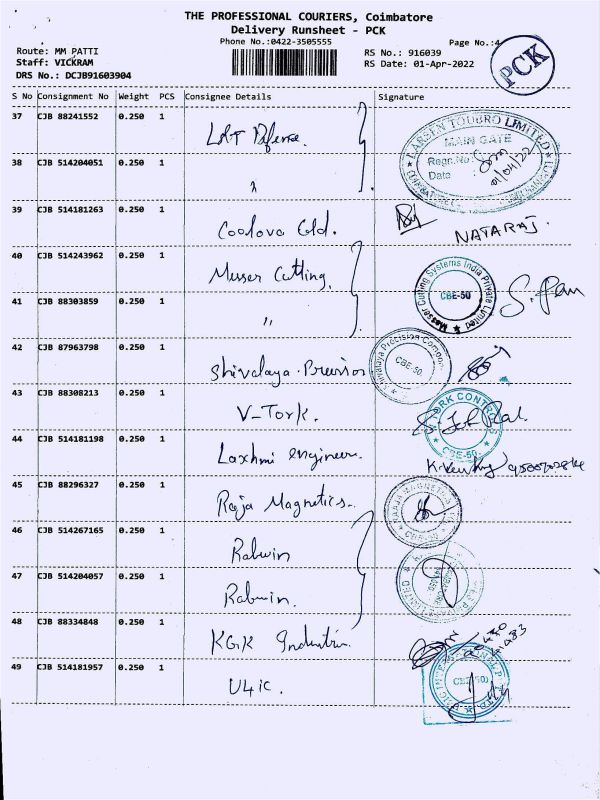 THE PROFESSIONAL COURIERS, Coimbatore
Delivery Runsheet - PCK
Phone No.:0422-3505555
Page No.:4
PCK
Route: MM PATTI
RS No.: 916039
Staff: VICKRAM
RS Date: 01-Apr-2022
DRS No.: DCJB91603904
S No Consignment No Weight PCS Consignee Details Signature
37 CJB 88241552 0.250 1 L&T Defense.
LARSEN TOUBRO LIMITED
MAIN GATE
Regn.No:
Date : 01/04/22
38 CJB 514204051 0.250 1 "
39 CJB 514181263 0.250 1 Coolova Cold.
NATARAJ.
40 CJB 514243962 0.250 1 Messer Cutting.
Messer Cutting Systems India Private Limited
CBE-50
41 CJB 88303859 0.250 1 "
42 CJB 87963798 0.250 1 Shivalaya Precision
Shivalaya Precision
CBE-50.
43 CJB 88308213 0.250 1 V-Tork.
TORK CONTROLS
CBE-50.
44 CJB 514181198 0.250 1 Laxhmi engineer.
45 CJB 88296327 0.250 1 Raja Magnetics.
RAAJA MAGNETICS
46 CJB 514267165 0.250 1 Rabwin
47 CJB 514204057 0.250 1 Rabwin.
48 CJB 88334848 0.250 1 KGK Industries
49 CJB 514181957 0.250 1 U4ic.